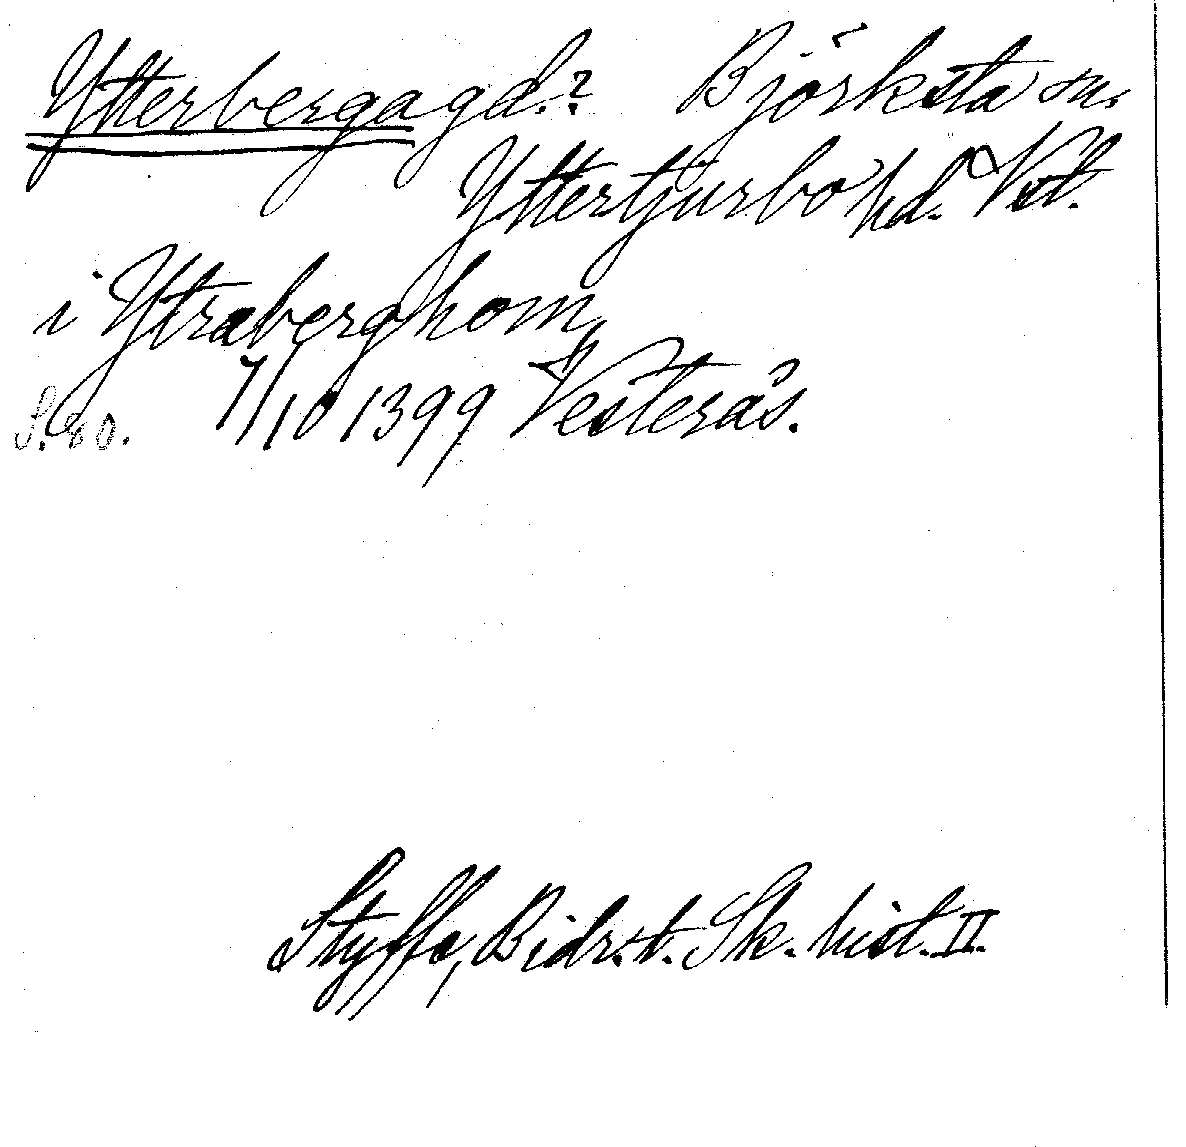 Ytterberga gd.? Björksta sn.
Yttertjurbo hd. Vstl.
i Ytraberghom,
S. 80. 7/10 1399 Vesterås.
Styffe, Bidr. t. Sk. hist. II.